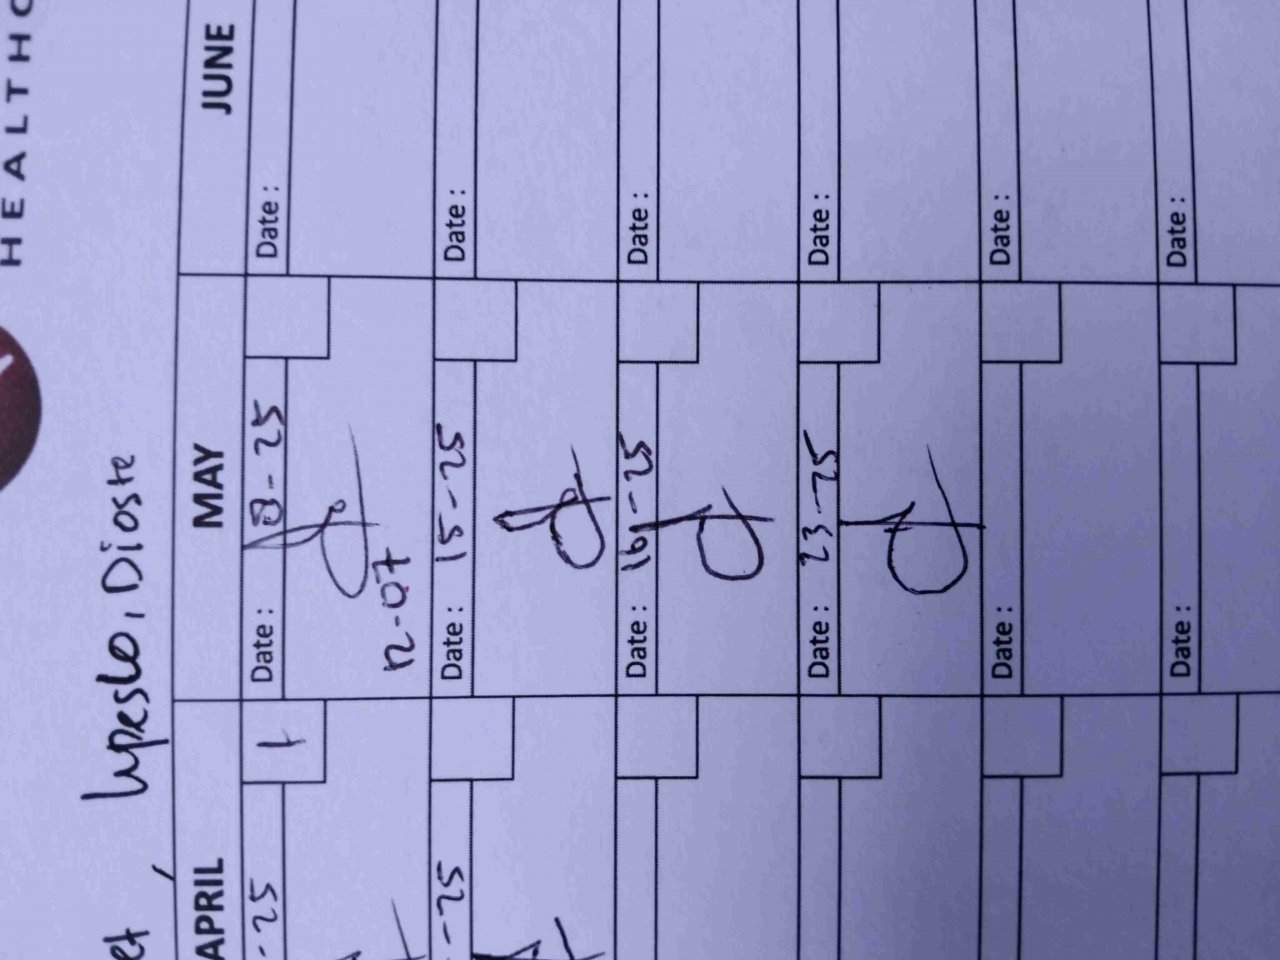 HEALTHC
et Lupeslo, Dioste
APRIL MAY JUNE
-25 1 Date: 8-25 Date:
12-07
-25 Date: 15-25 Date:
Date: 16-25 Date:
Date: 23-25 Date:
Date: Date:
Date: Date: